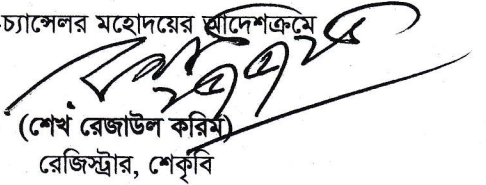 -চ্যান্সেলর মহোদয়ের আদেশক্রমে
(শেখ রেজাউল করিম)
রেজিস্ট্রার, শেকৃবি